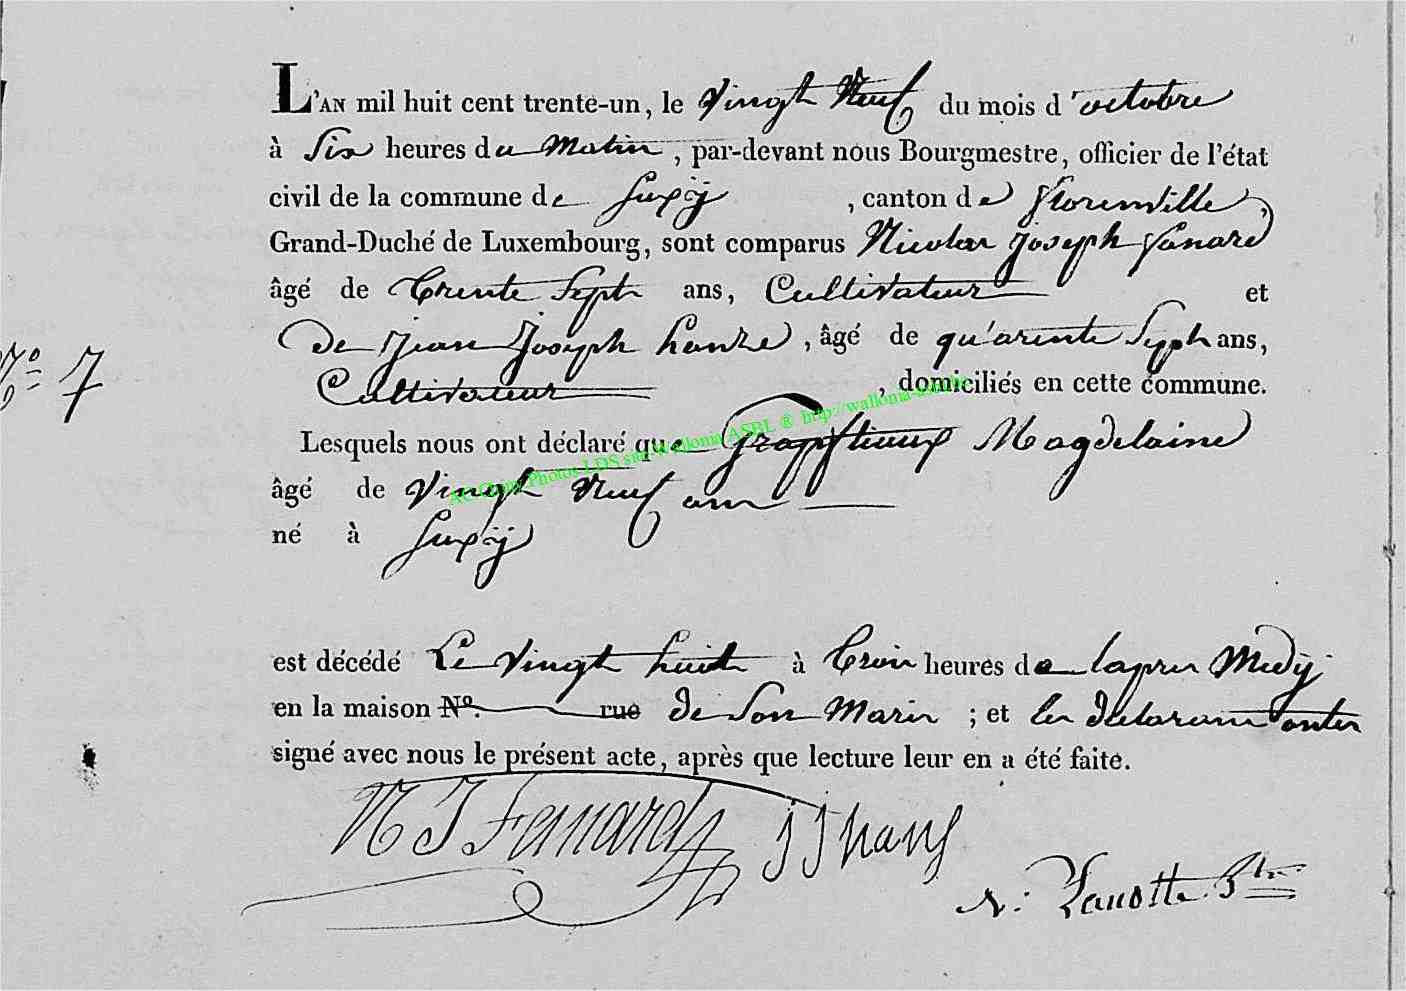 L'AN mil huit cent trente-un, le Vingt Neuf du mois d'octobre
à Six heures du Matin, par-devant nous Bourgmestre, officier de l'état
civil de la commune de Suxÿ, canton de florenville,
Grand-Duché de Luxembourg, sont comparus Nicolas joseph fanard
âgé de trente Sept ans, Cultivateur et
de jean joseph hanse, âgé de qu'arente Sept ans,
Cultivateur, domiciliés en cette commune.
N° 7
Lesquels nous ont déclaré que Magdelaine
âgé de Vingt Neuf ans
né à Suxÿ
AC Chiny Photos LDS site Wallonia ASBL ® http://wallonia-asbl.be
est décédé Le Vingt huit à trois heures de lapres Midÿ
en la maison N°. rue de Son Maris ; et les declarans ontes
signé avec nous le présent acte, après que lecture leur en a été faite.
N J Fanard J J hans
N: Lanotte